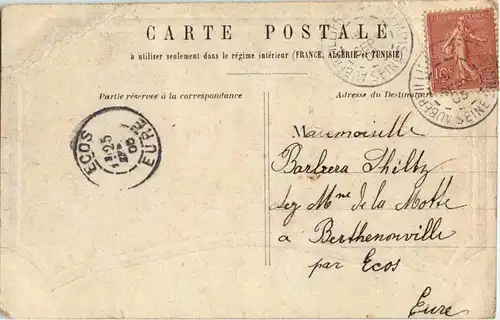 CARTE POSTALE
à utiliser seulement dans le régime intérieur (FRANCE, ALGÉRIE et TUNISIE)
Partie réservée à la correspondance
Adresse du Destinataire
10
AUBERVILLIERS SEINE
ECOS
EURE
25
05
Mademoiselle
Barbera Philtz
chez Mme de la Motte
a Berthenonville
par Ecos
Eure